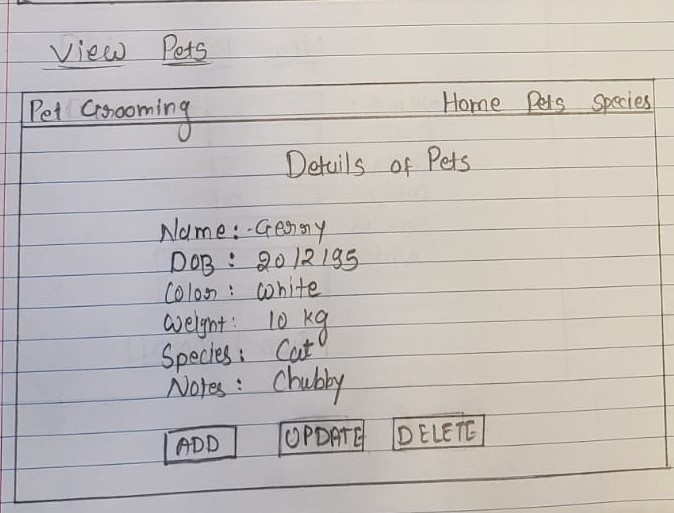 View Pets
Pet Grooming Home Pets Species
Details of Pets
Name:- Gerry
DOB : 20/2/95
Color : White
Weight: 10 kg
Species: Cat
Notes : Chubby
ADD UPDATE DELETE